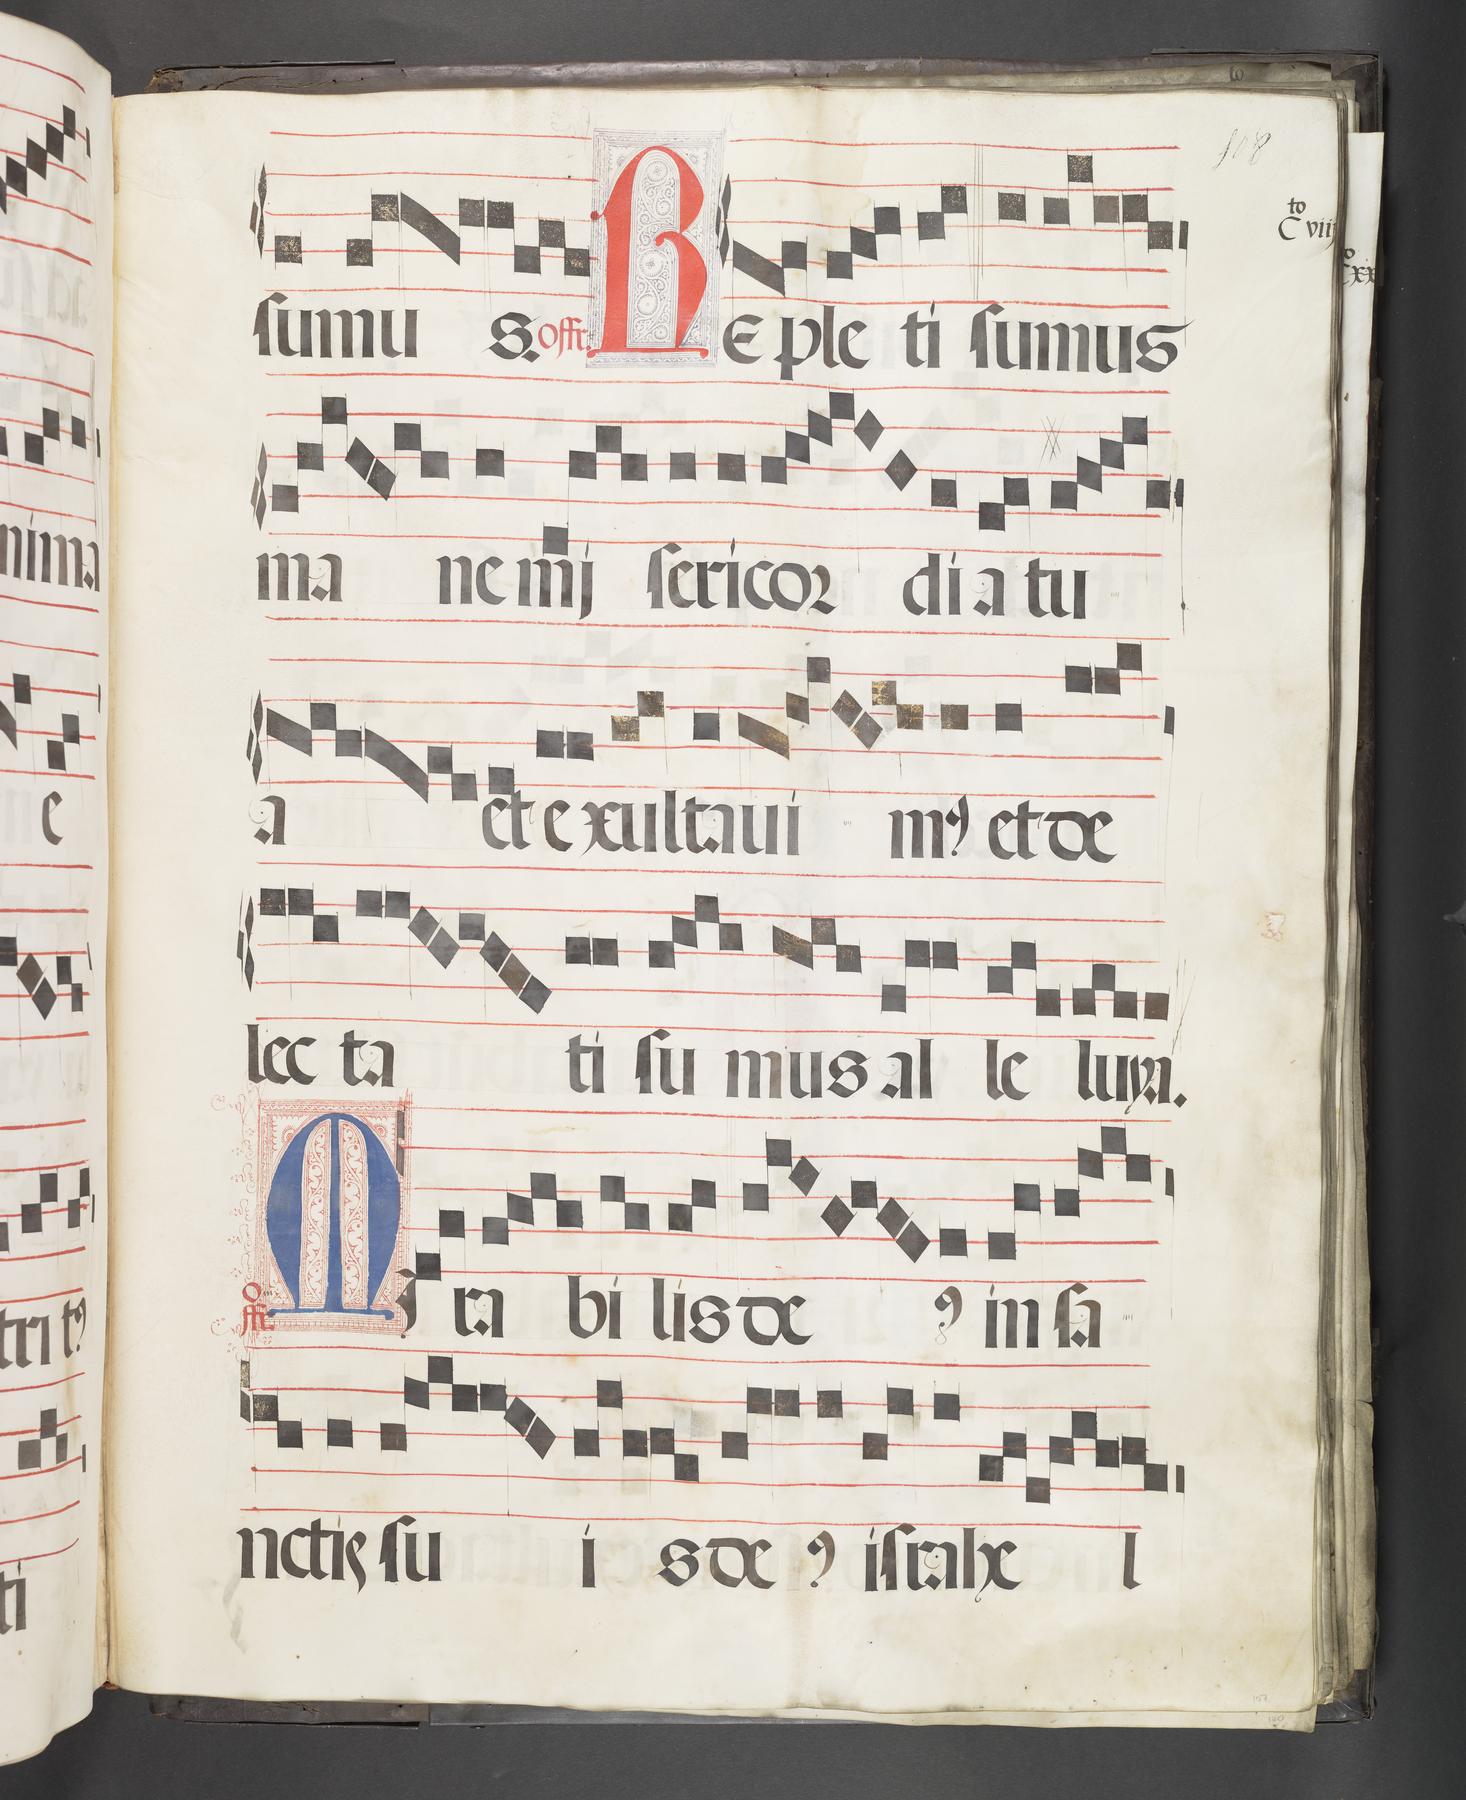 108
to
C viij
sumu s. offr. REple ti sumus
ma ne mi sericor di a tu
a et e xultaui mꝰ et de
lec ta ti su mus al le luya.
offr. MI ra bi lis de ꝰ in sa
nctis su i s de ꝰ israhe l
nima
e
tri tꝰ
ti